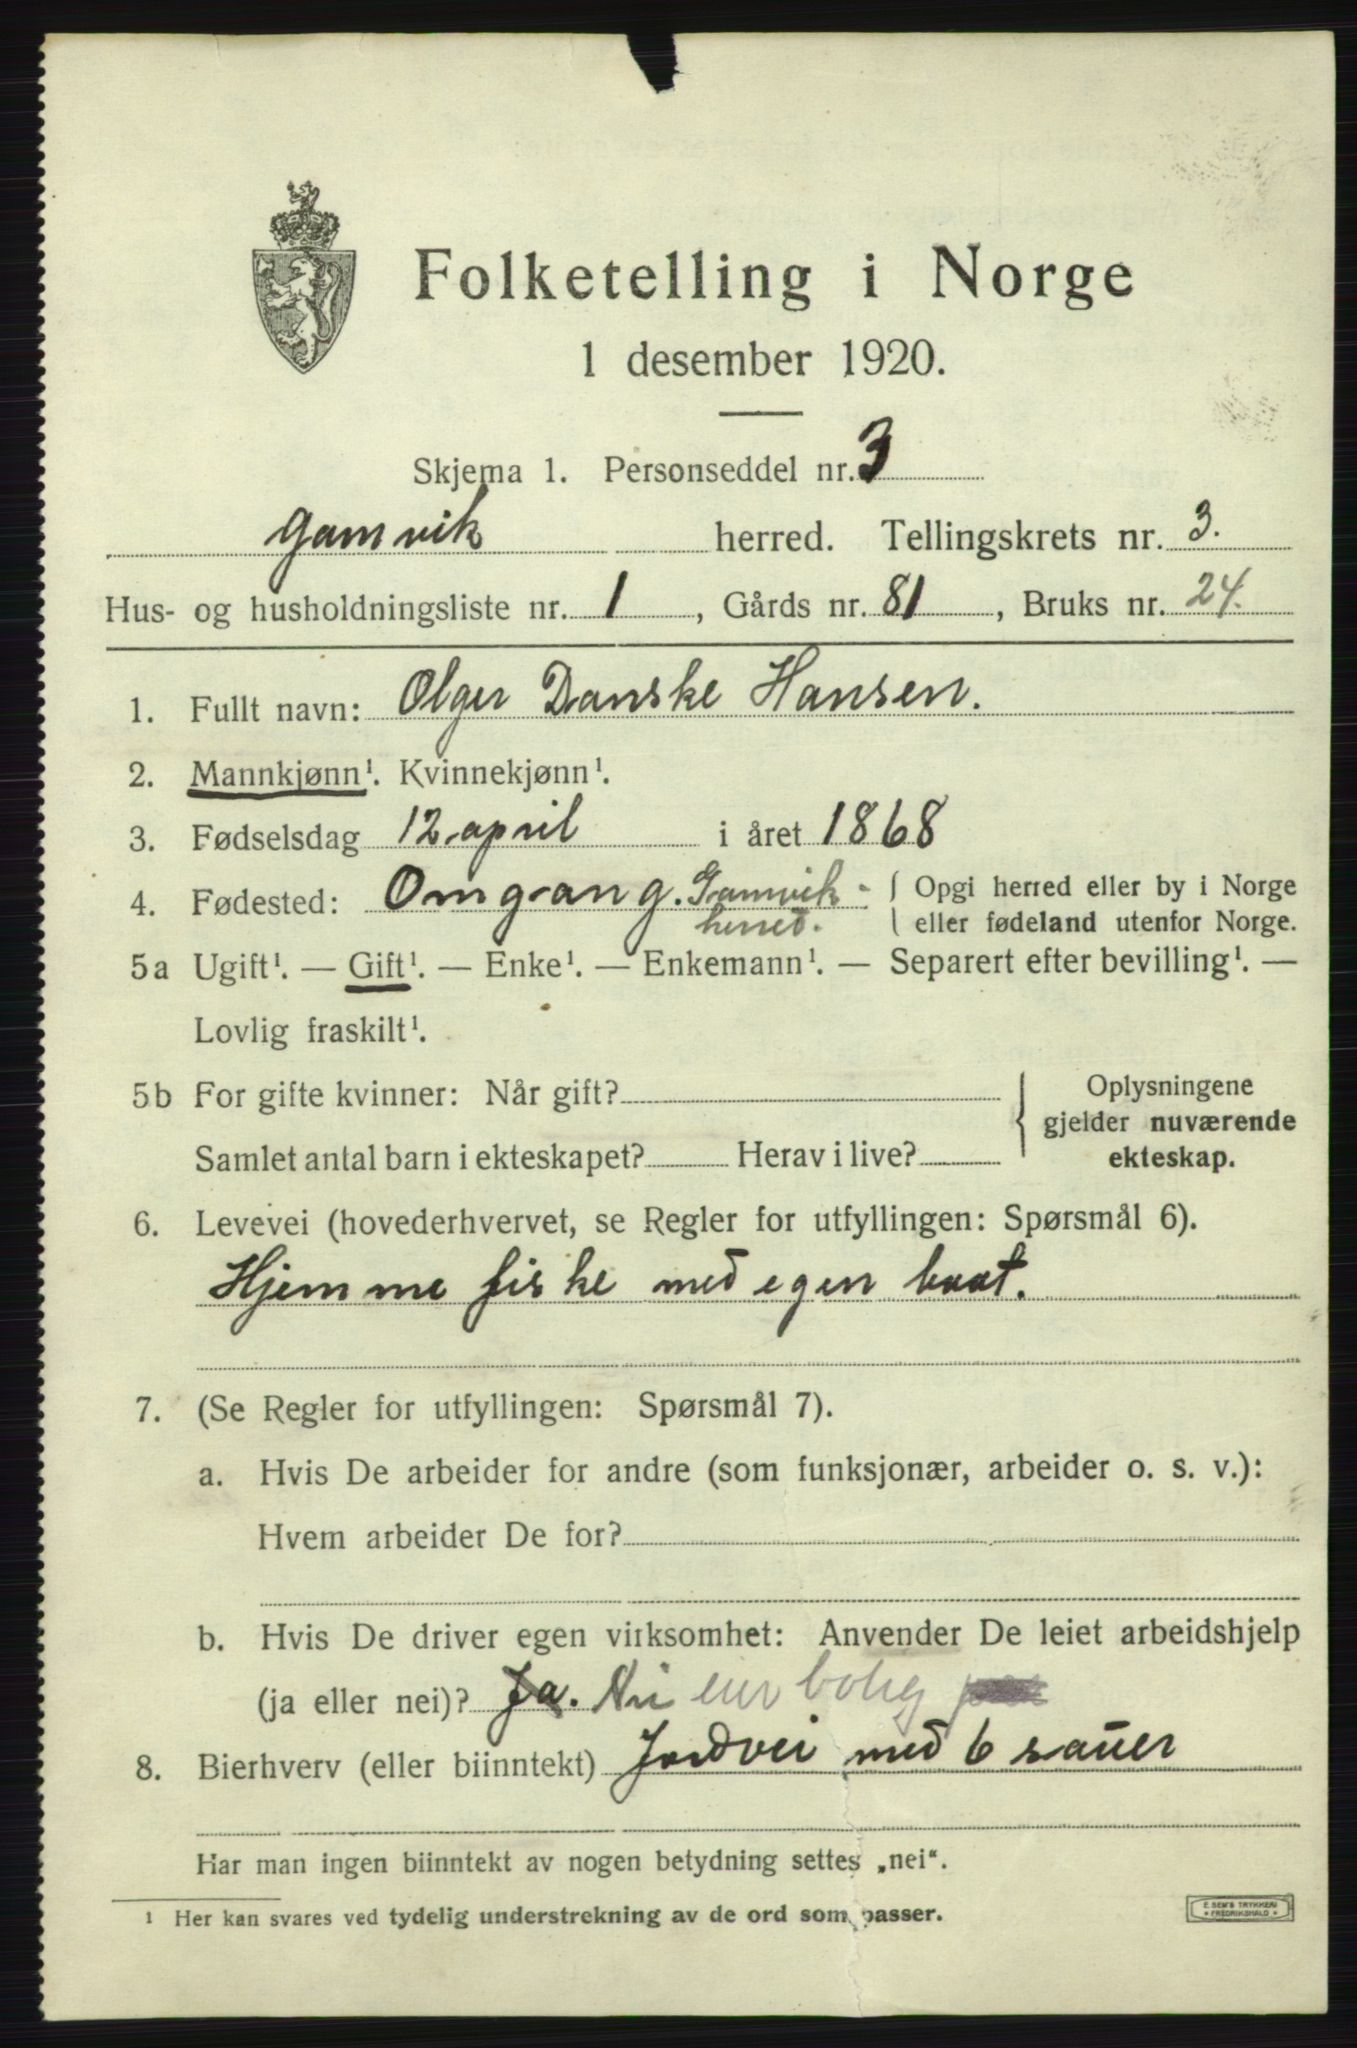 Folketelling i Norge
1 desember 1920.
Skjema 1. Personseddel nr. 3
Gamvik herred. Tellingskrets nr. 3.
Hus- og husholdningsliste nr. 1, Gårds nr. 81, Bruks nr. 24.
1. Fullt navn: Olger Danske Hansen.
2. Mannkjønn¹. Kvinnekjønn¹.
3. Fødselsdag 12 april i året 1868
4. Fødested: Omgang. Gamvik herred. Opgi herred eller by i Norge
eller fødeland utenfor Norge.
5a Ugift¹. — Gift¹. — Enke¹. — Enkemann¹. — Separert efter bevilling¹. —
Lovlig fraskilt¹.
5b For gifte kvinner: Når gift? Oplysningene
gjelder nuværende
Samlet antal barn i ekteskapet? Herav i live? ekteskap.
6. Levevei (hovederhvervet, se Regler for utfyllingen: Spørsmål 6).
Hjemme fiske med egen baat.
7. (Se Regler for utfyllingen: Spørsmål 7).
a. Hvis De arbeider for andre (som funksjonær, arbeider o. s. v.):
Hvem arbeider De for?
b. Hvis De driver egen virksomhet: Anvender De leiet arbeidshjelp
(ja eller nei)? Ja. Nei eier bolig
8. Bierhverv (eller biinntekt) Jordvei med 6 sauer
Har man ingen biinntekt av nogen betydning settes „nei“.
¹ Her kan svares ved tydelig understrekning av de ord som passer.
E. SEM'S TRYKKERI
* FREDRIKSHALD *